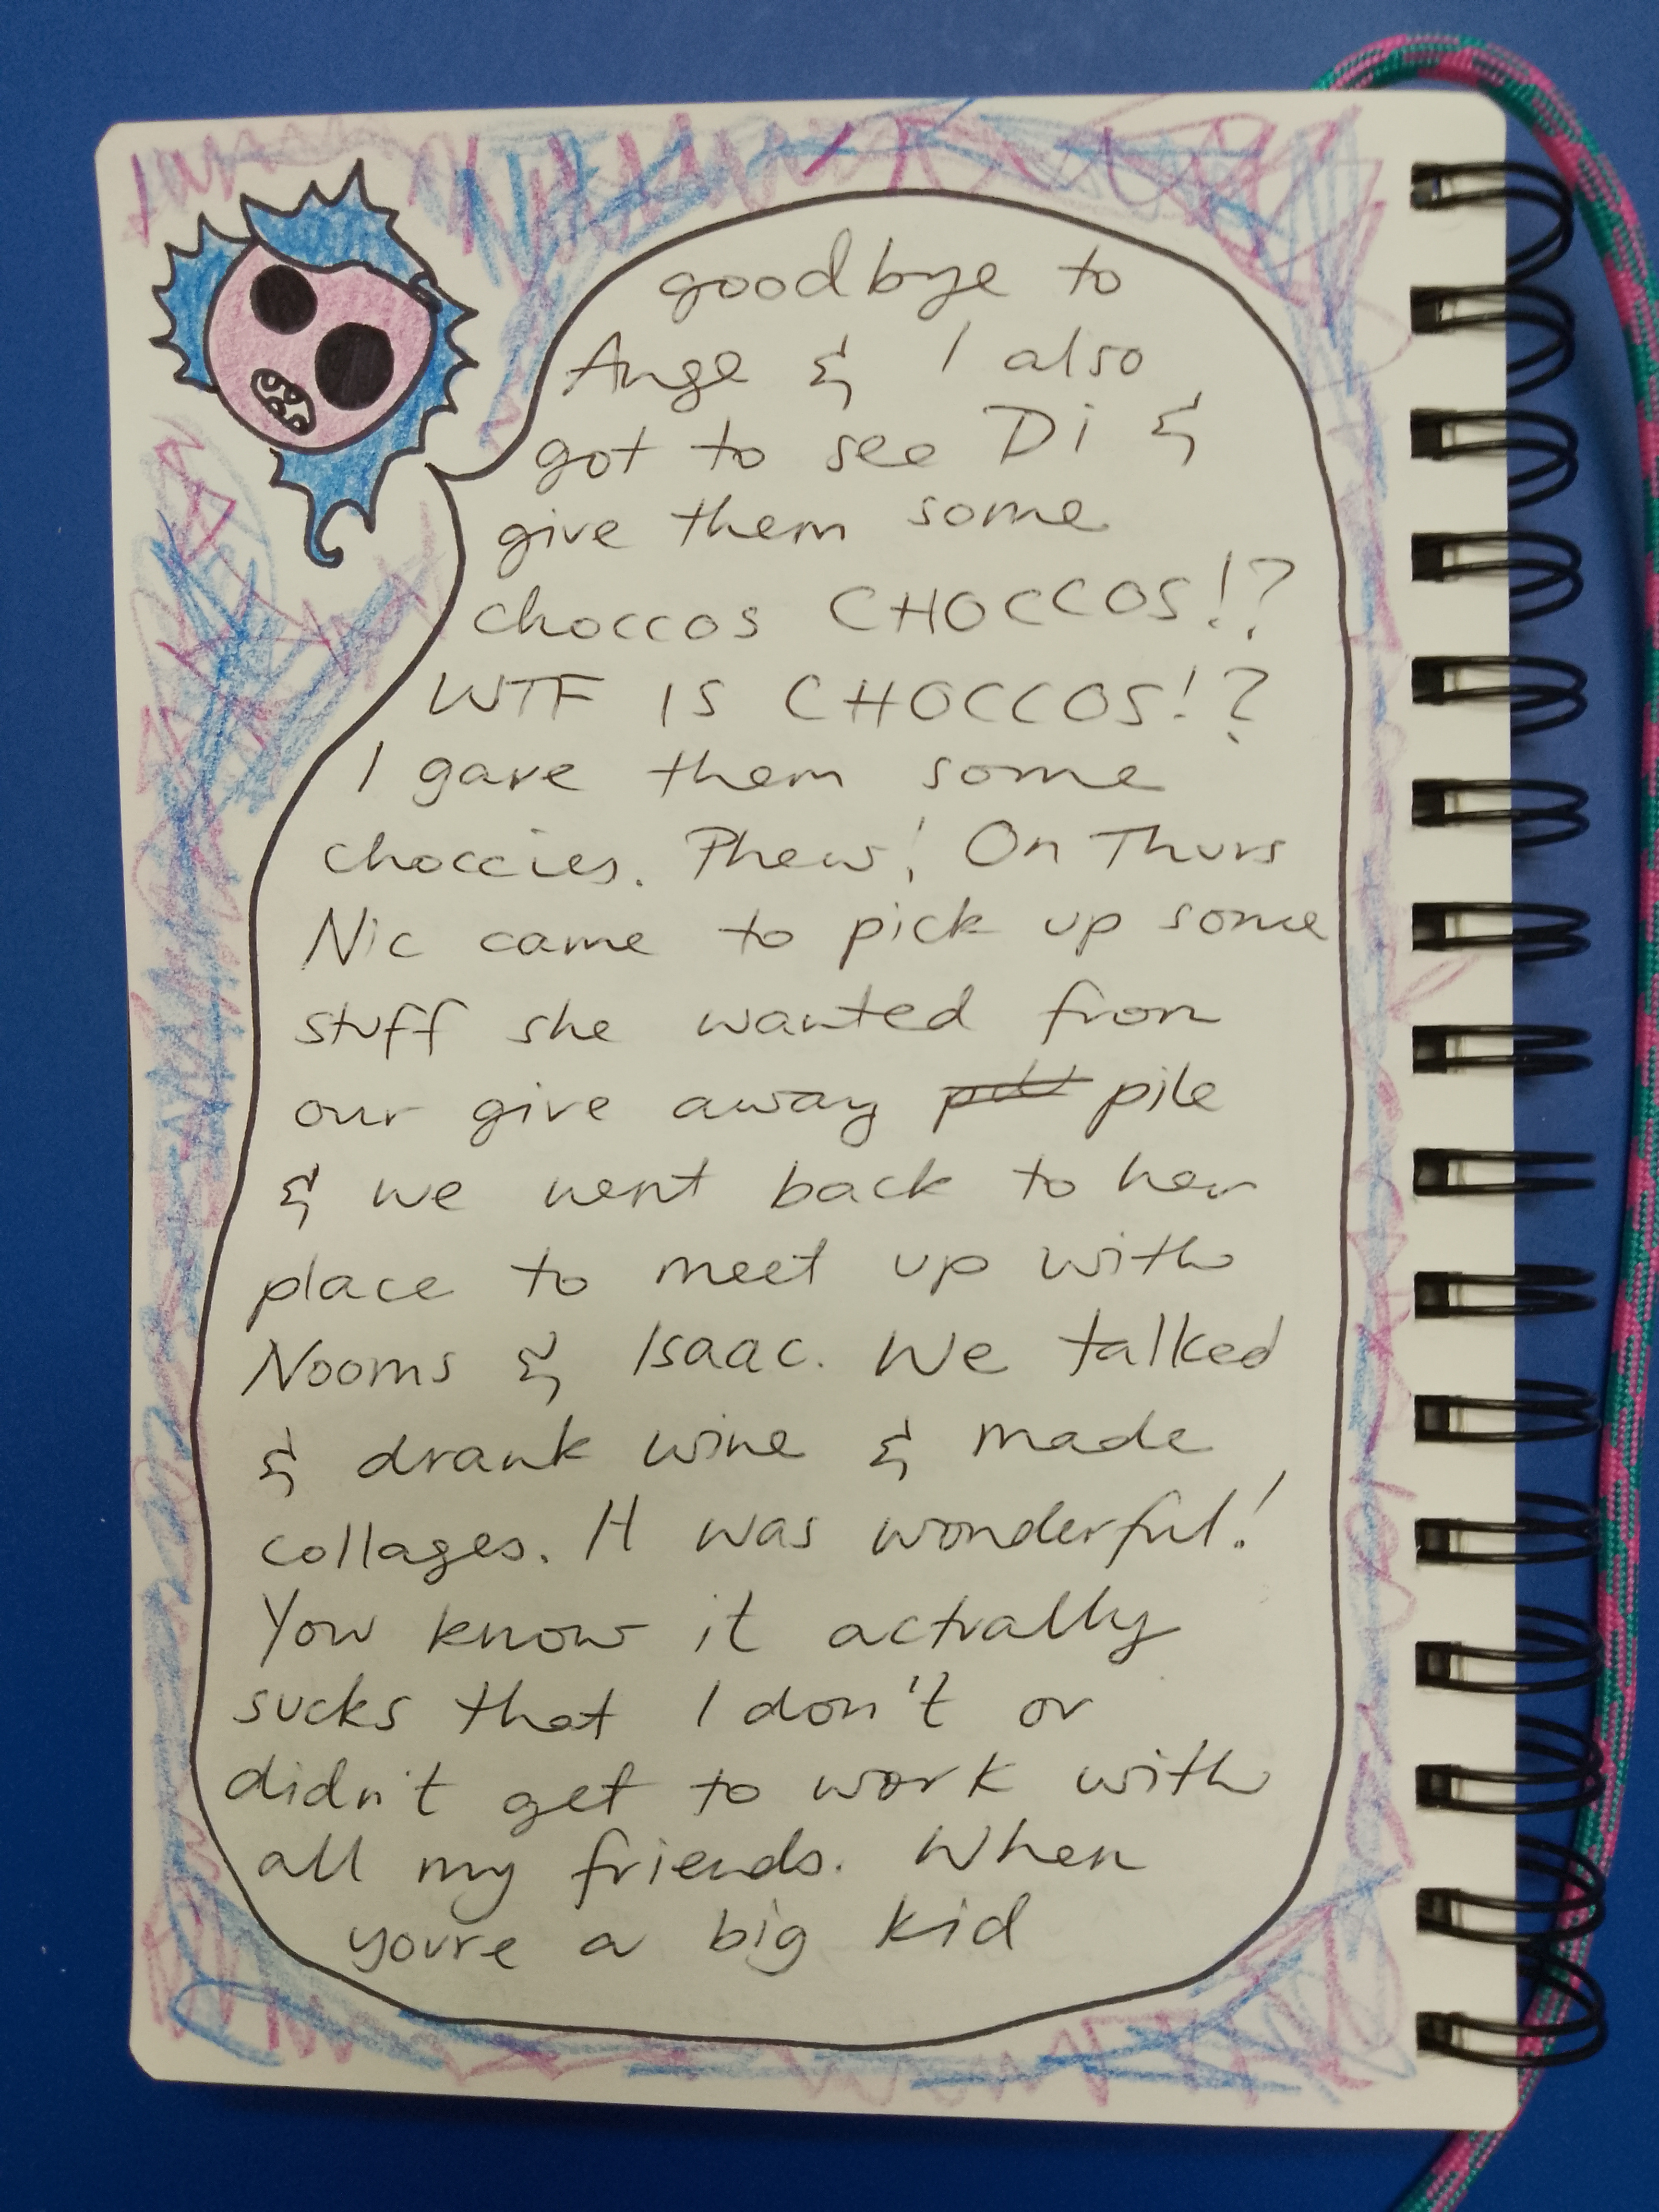 goodbye to
Ange & I also
got to see Di &
give them some
choccos CHOCCOS!?
WTF IS CHOCCOS!?
I gave them some
choccies. Phew! On Thurs
Nic came to pick up some
stuff she wanted from
our give away pile
& we went back to her
place to meet up with
Nooms & Isaac. We talked
& drank wine & made
collages. It was wonderful!
You know it actually
sucks that I don't or
didn't get to work with
all my friends. When
you're a big kid